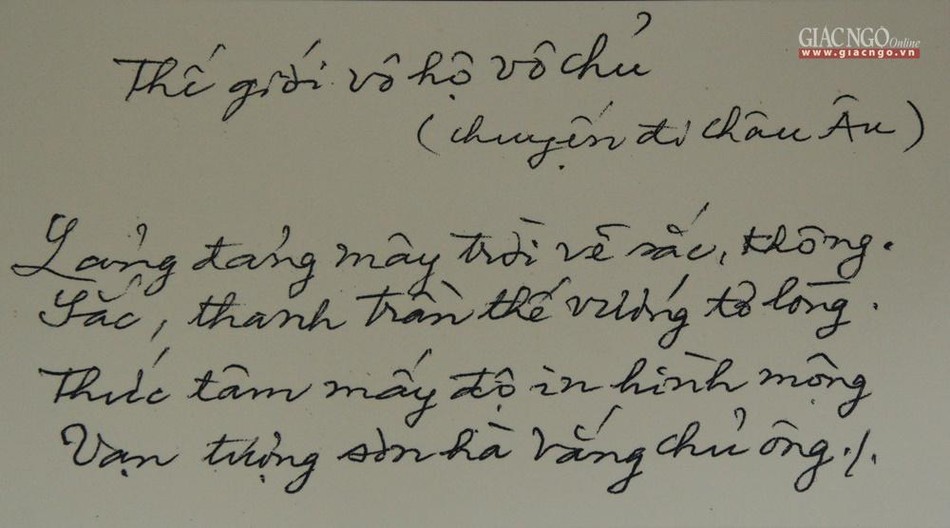 GIÁC NGỘ Online
www.giacngo.vn
Thế giới vô hộ vô chủ
(chuyến đi Châu Âu)
Lảng đảng mây trời vẽ sắc, không.
Sắc, thanh trần thế vướng tơ lòng.
Thức tâm mấy độ in hình mộng
Vạn tượng sơn hà vắng chủ ông./.